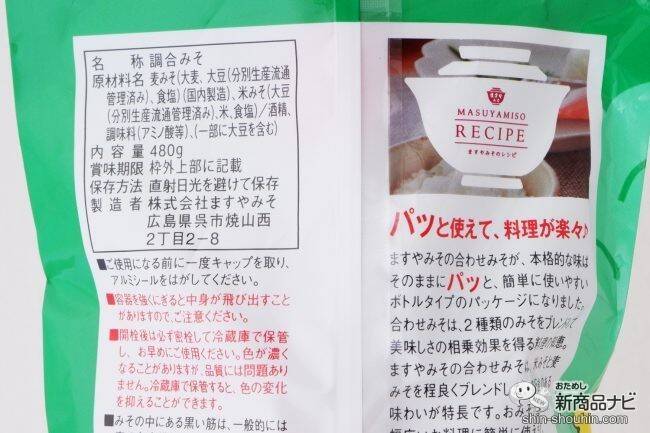 名　称 調合みそ
原材料名 麦みそ(大麦、大豆(分別生産流通
管理済み)、食塩)(国内製造)、米みそ(大豆
(分別生産流通管理済み)、米、食塩)/酒精、
調味料(アミノ酸等)、(一部に大豆を含む)
内容量 480g
賞味期限 枠外上部に記載
保存方法 直射日光を避けて保存
製造者 株式会社ますやみそ
広島県呉市焼山西
2丁目2-8
■ご使用になる前に一度キャップを取り、
アルミシールをはがしてください。
■容器を強くにぎると中身が飛び出すこと
がありますので、ご注意ください。
■開栓後は必ず密栓して冷蔵庫で保管
し、お早めにご使用ください。色が濃く
なることがありますが、品質には問題あり
ません。冷蔵庫で保管すると、色の変化
を抑えることができます。
■みその中にある黒い筋は、一般的には
ますやみそ
MASUYAMISO
RECIPE
ますやみそのレシピ
パッと使えて、料理が楽々♪
ますやみその合わせみそが、本格的な味は
そのままにパッと、簡単に使いやすい
ボトルタイプのパッケージになりました。
合わせみそは、2種類のみそをブレンドして
美味しさの相乗効果を得る
ますやみその合わせみそは、米みそと麦
みそを程良くブレンドし
味わいが特長です。おみ
幅広いお料理に簡単に使え
おためし
新商品ナビ
shin-shouhin.com